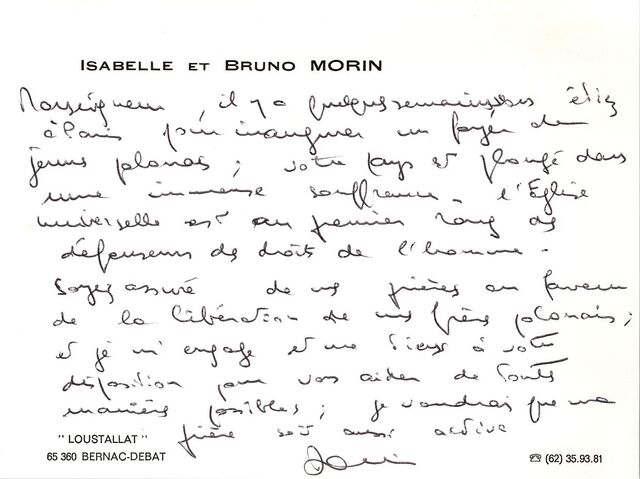 ISABELLE ET BRUNO MORIN
Monseigneur, il y a quelques semaines vous étiez
à Paris pour inaugurer un foyer de
jeunes polonais ; votre pays est plongé dans
une immense souffrance. l'Église
universelle est au premier rang des
défenseurs des droits de l'homme.
Soyez assuré de nos prières en faveur
de la libération de nos frères polonais ;
et je m'engage et me tiens à votre
disposition pour vous aider de toutes
manières possibles ; je voudrais que ma
prière soit aussi active
" LOUSTALLAT "
65 360 BERNAC-DEBAT
☎ (62) 35.93.81